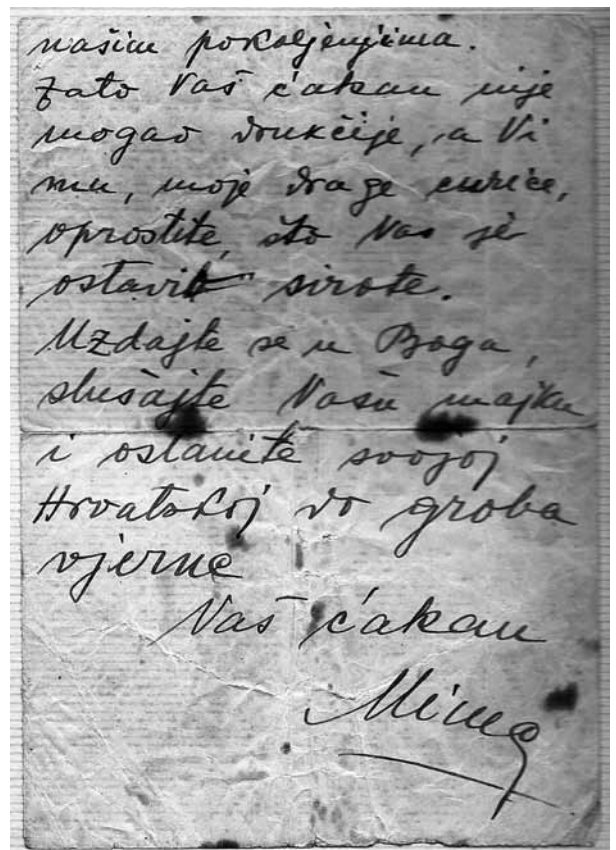 našim pokoljenjima.
Zato Vaš ćakan nije
mogao drukčije, a Vi
mu, moje drage curice,
oprostite, što Vas je
ostavio sirote.
Uzdajte se u Boga,
slušajte Vašu majku
i ostanite svojoj
Hrvatskoj do groba
vjerne
Vaš ćakan